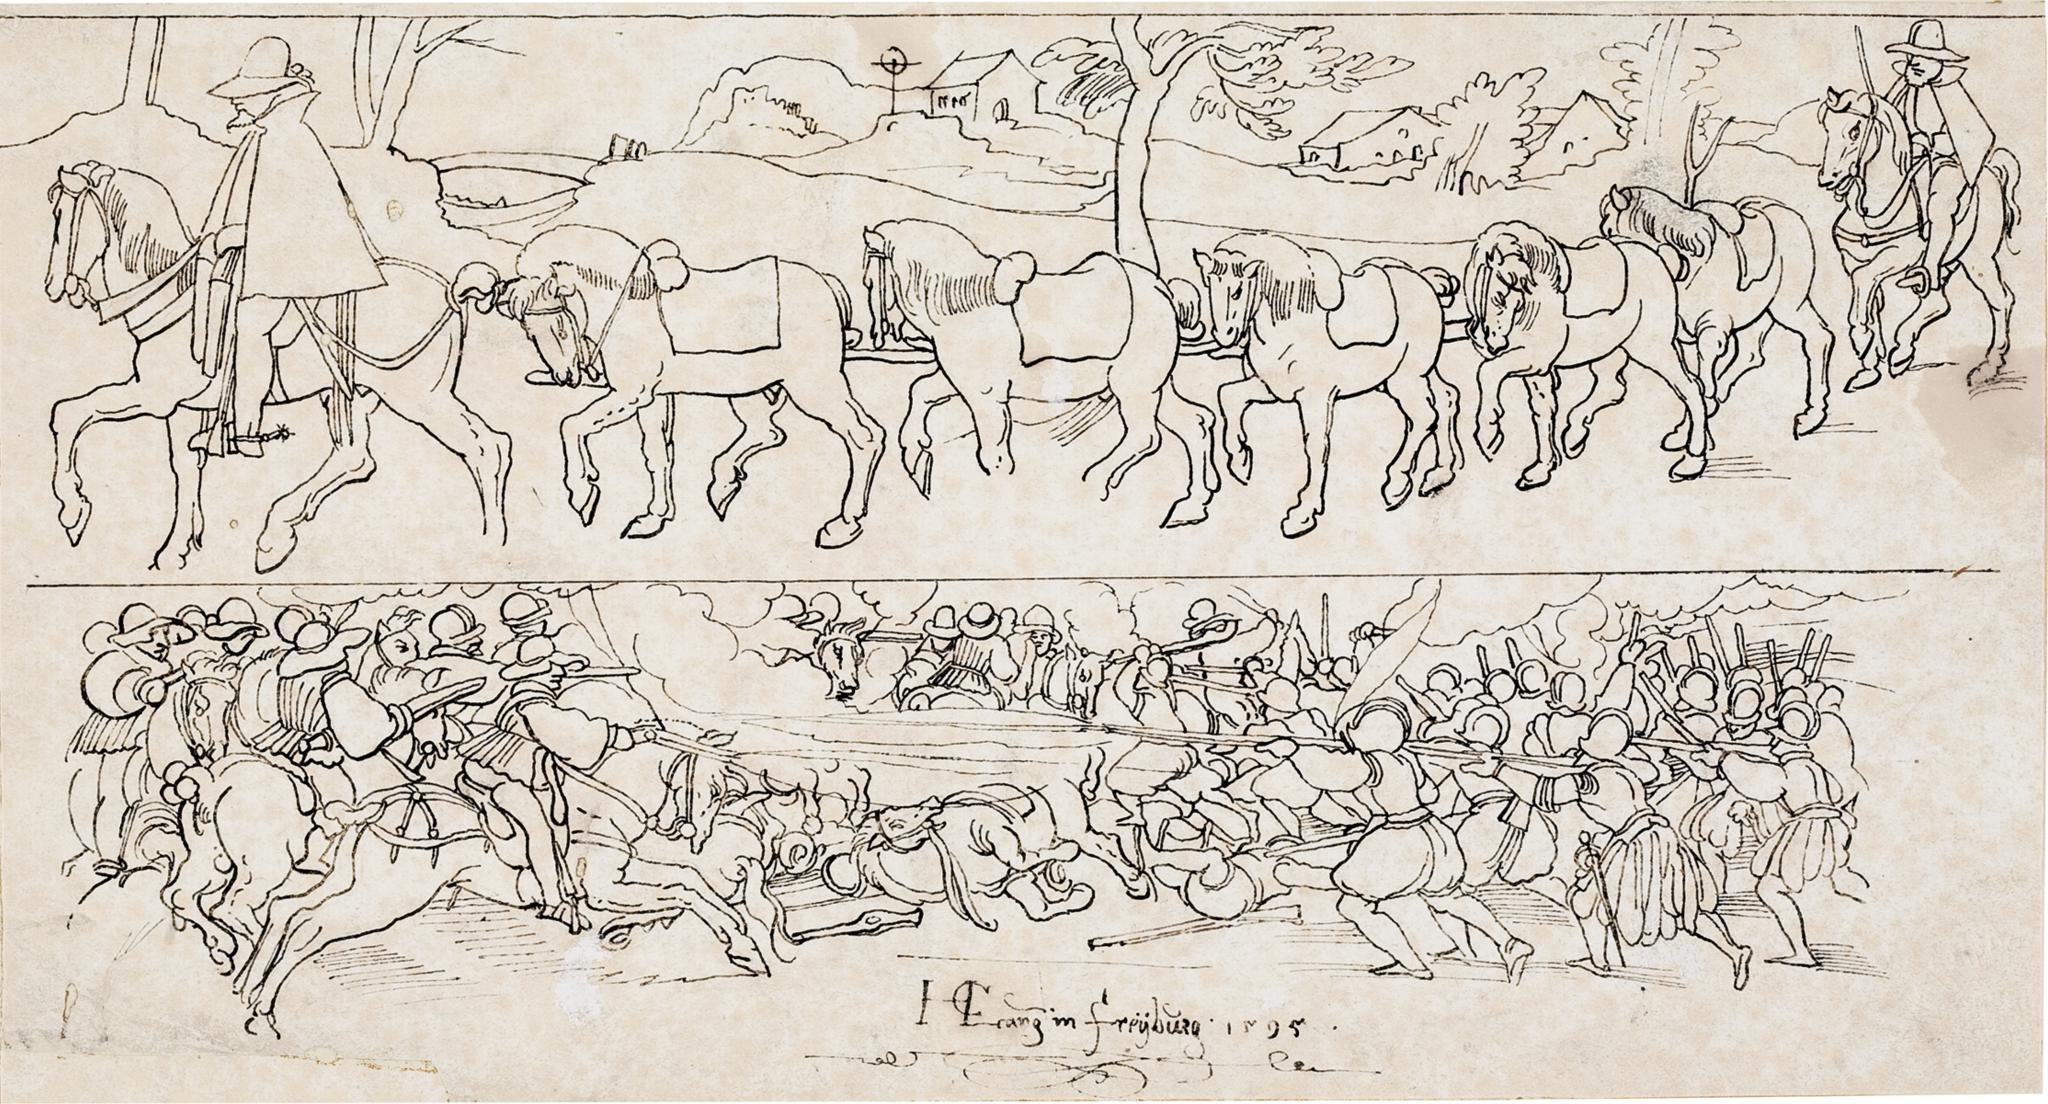 H C Lang in freÿburg · 1595 ·